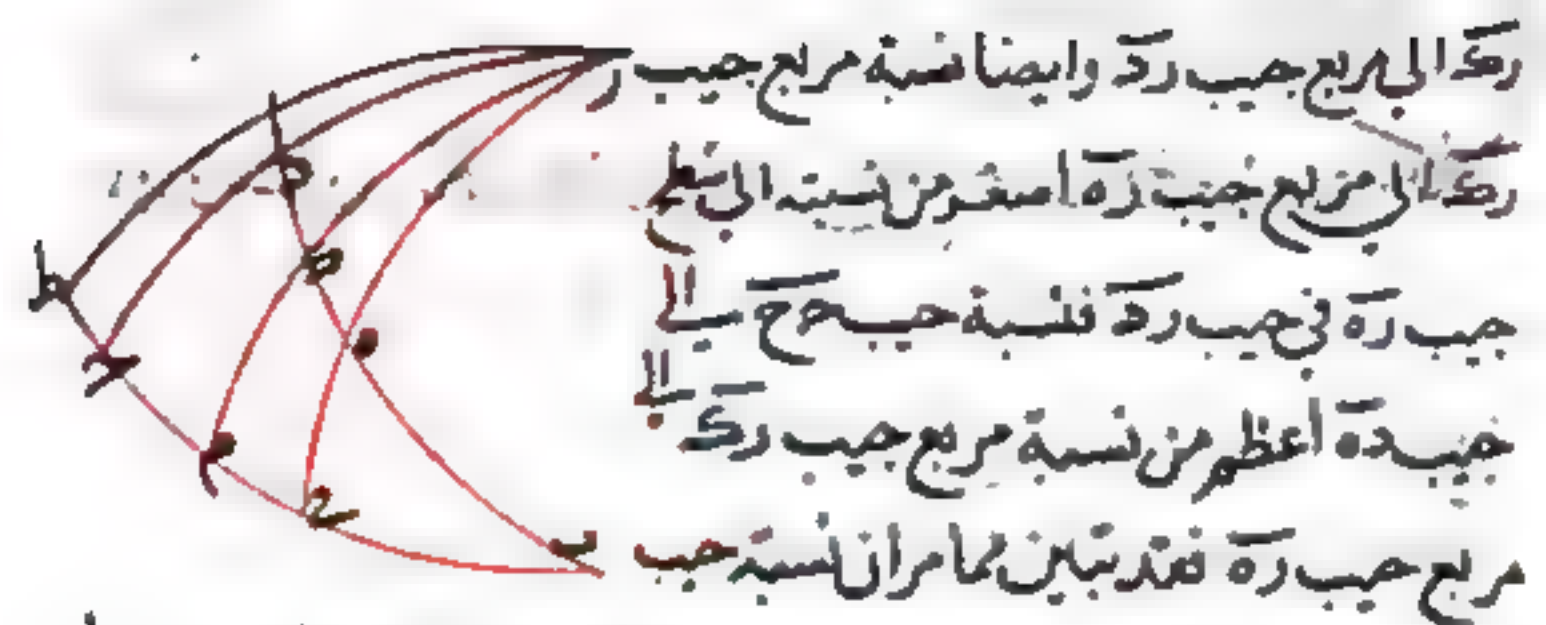 رك الى مربع جيب رد وايضا نسبة مربع جيب
رك الى مربع جيب زه اصغر من نسبته الى سطح
جيب ره في جيب رد فنسبة جيب ح ح الى
جيب ده اعظم من نسبة مربع جيب رك الى
مربع جيب ره فقد تبين مما مر ان نسبة جيب
ر
ط
ه
ح
م
ب